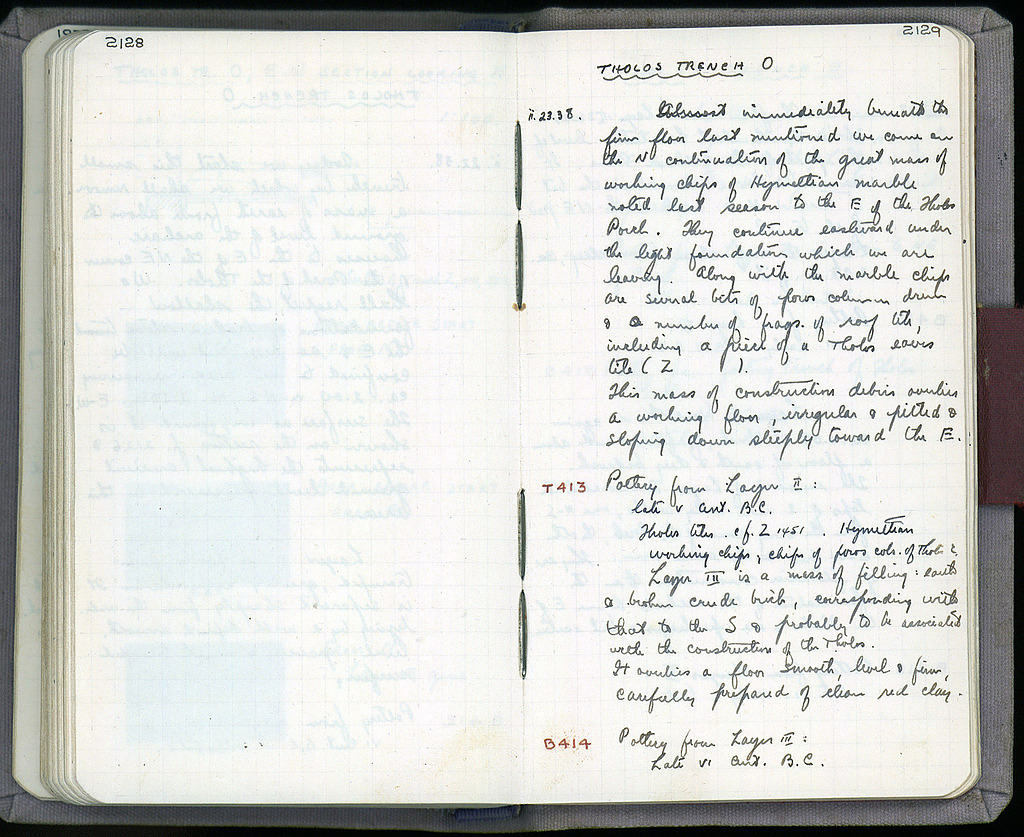 2128
2129
THOLOS TRENCH O
ii.23.38. Almost immediately beneath the
firm floor last mentioned we come on
the N continuation of the great mass of
working chips of Hymettian marble
noted last season to the E of the Tholos
Porch. They continue eastward under
the light foundation which we are
leaving. Along with the marble chips
are several bits of poros column drum
& a number of frags. of roof tile,
including a piece of a Tholos eaves
tile ( Z ).
This mass of construction debris overlies
a working floor, irregular & pitted &
sloping down steeply toward the E.
T413 Pottery from Layer II :
late v cent. B.C.
Tholos tiles. cf. Z 1451. Hymettian
working chips, chips of poros cols. of Tholos
Layer III is a mass of filling: earth
& broken crude brick, corresponding with
that to the S & probably to be associated
with the construction of the Tholos.
It overlies a floor smooth, level & firm,
carefully prepared of clean red clay.
B414 Pottery from Layer III :
Late vi cent. B.C.